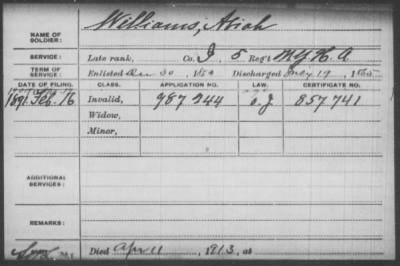 NAME OF SOLDIER: Williams, Abiah
SERVICE: Late rank, Co. I, 5 Reg't N.Y.H.A.
TERM OF SERVICE: Enlisted Dec 30, 1863 Discharged 19, 1865
DATE OF FILING. CLASS. APPLICATION NO. LAW. CERTIFICATE NO.
1891, Feb. 16 Invalid, 987 244 857 741
Widow,
Minor,
ADDITIONAL SERVICES:
REMARKS:
Died Apr 11, 1913, at